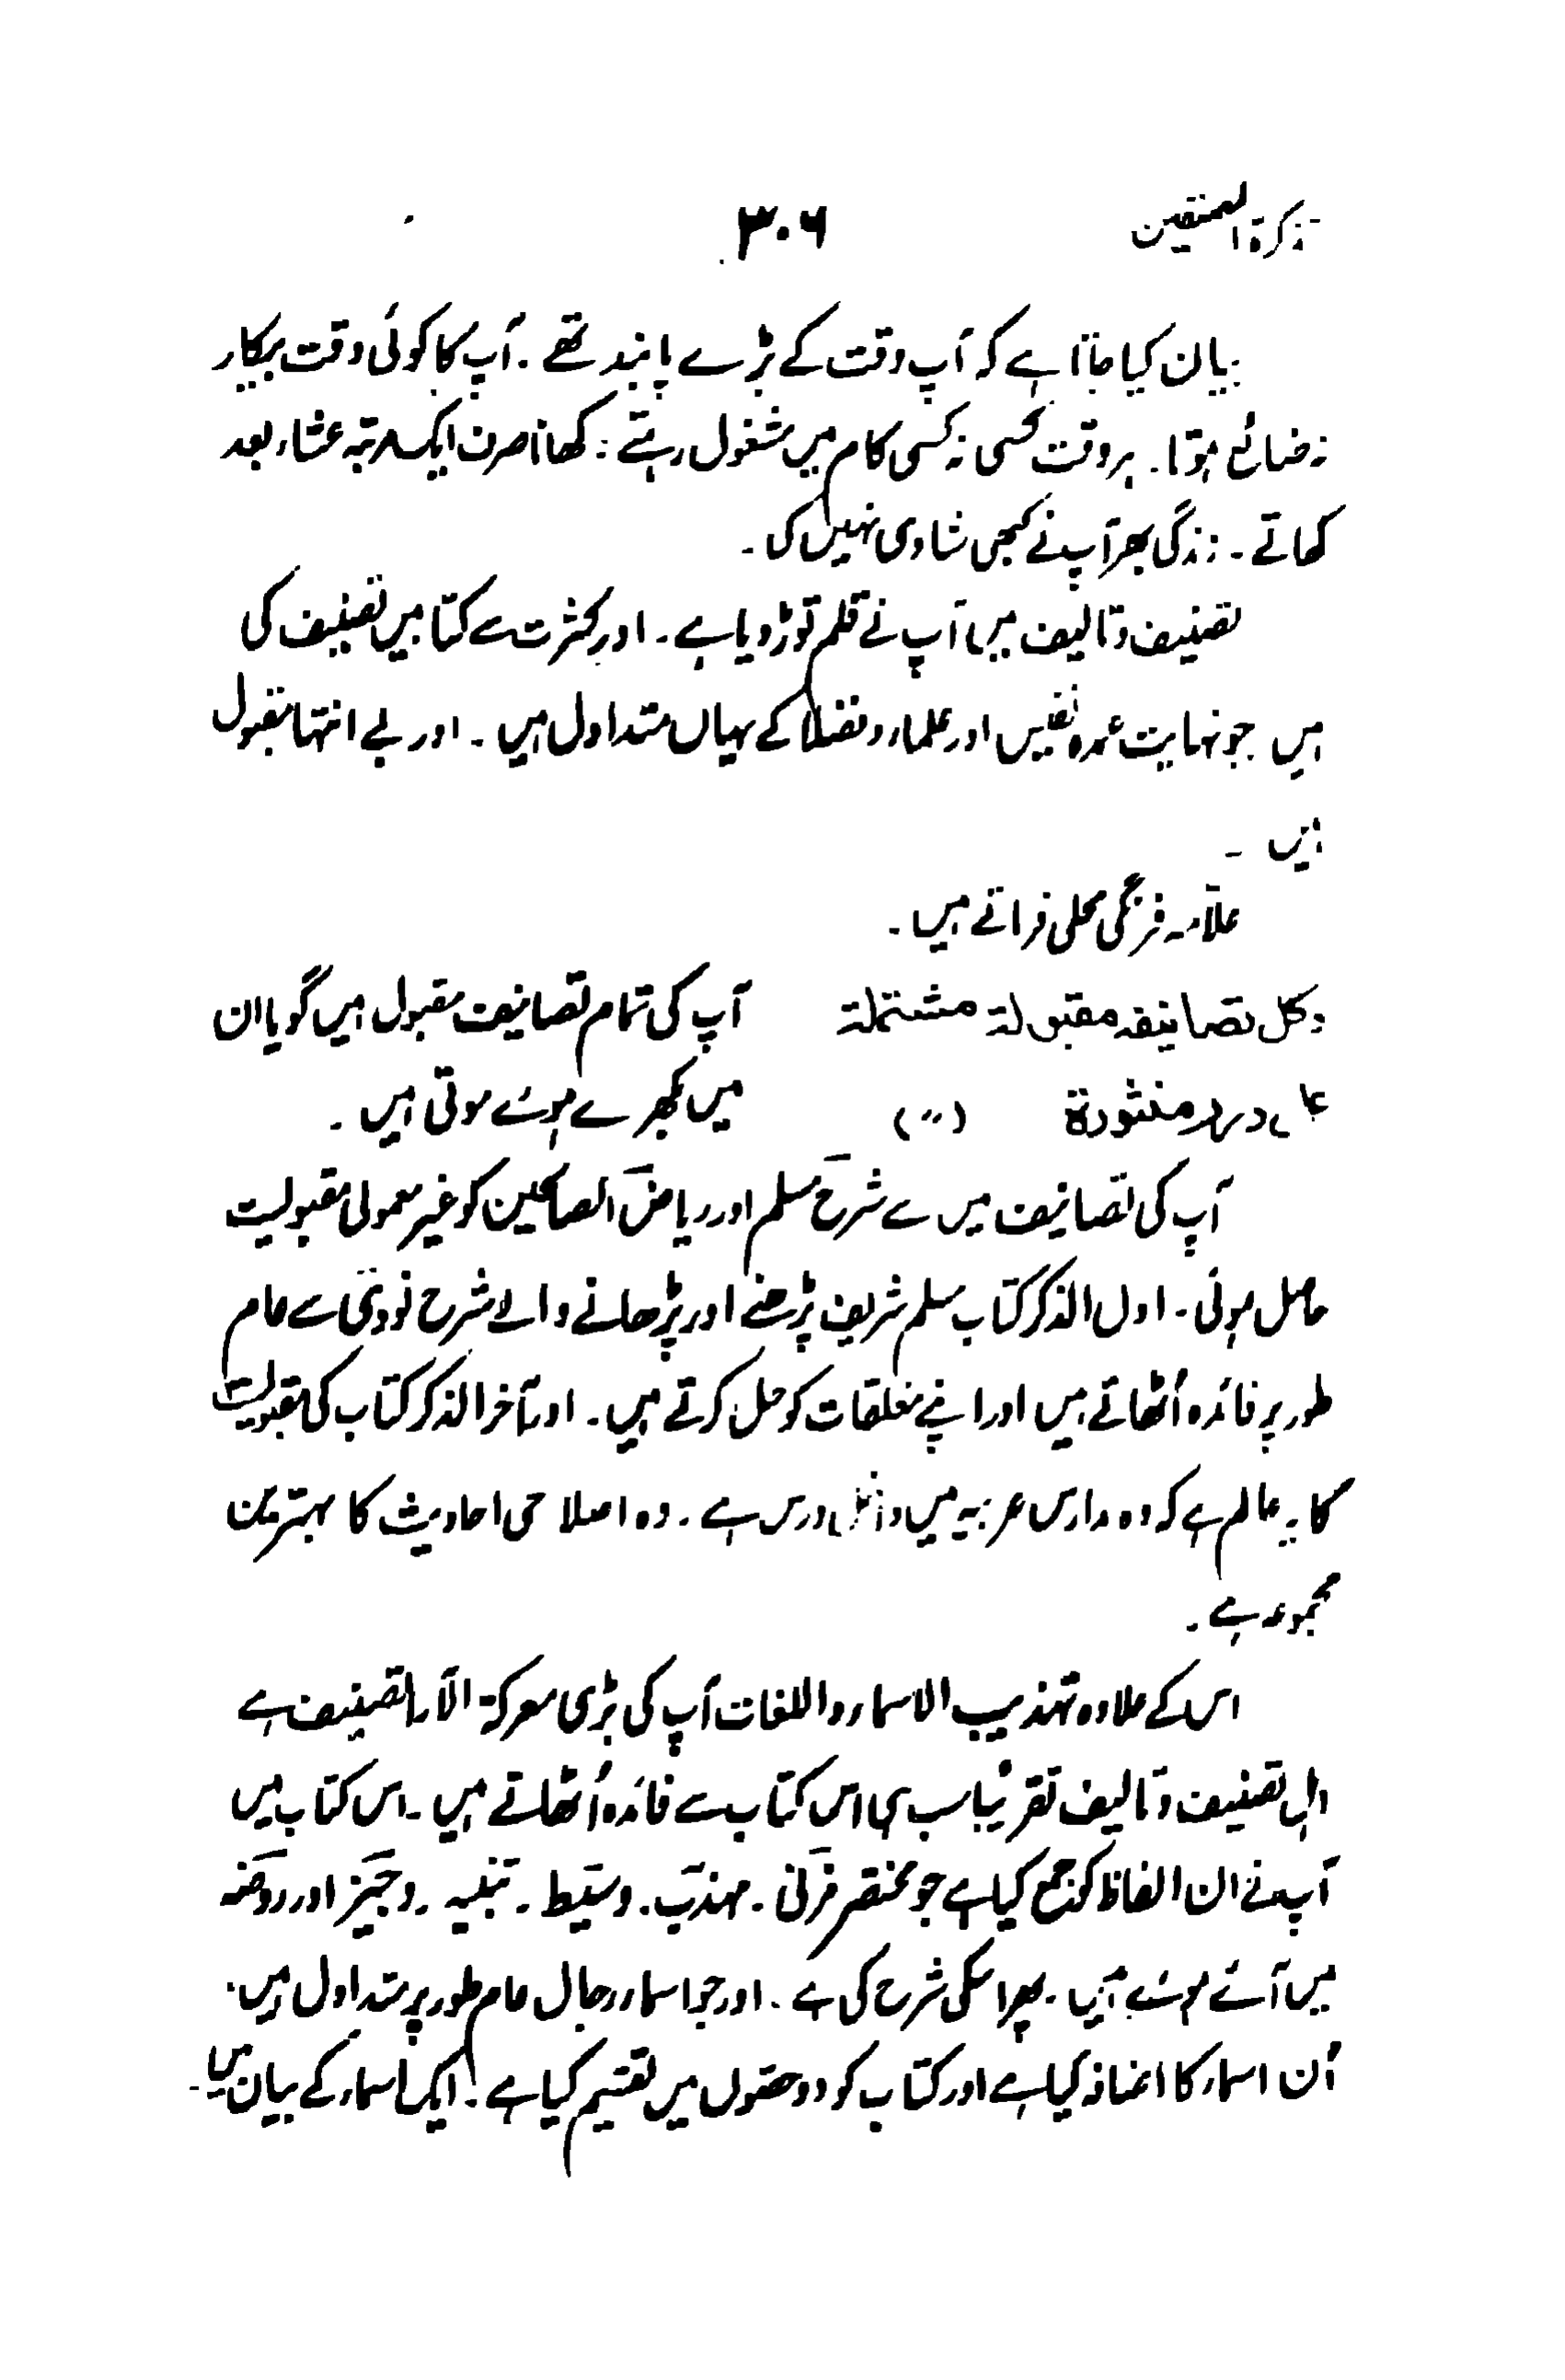 تذکرۃ المصنفین ۳۰۶
بیان کیا جاتا ہے کہ آپ وقت کے بڑے پابند تھے ۔ آپ کا کوئی وقت بیکار
نہ ضائع ہوتا ۔ ہر وقت کسی نہ کسی کام میں مشغول رہتے ۔ کھانا صرف ایک مرتبہ عشاء بعد
کھاتے ۔ زندگی بھر آپ نے کبھی شادی نہیں کی ۔
تصنیف و تالیف میں آپ نے قلم توڑ دیا ہے ۔ اور کثرت سے کتابیں تصنیف کی
ہیں جو نہایت عمدہ نفیس اور علماء و فضلا کے یہاں متداول ہیں ۔ اور بے انتہا مقبول
ہیں ۔
علامہ فرنگی محلی فرماتے ہیں ۔
وکل تصانیفہ مقبولۃ مشتملۃ آپ کی تمام تصانیف مقبول ہیں گویا ان
علی درر منثورۃ (〃) میں بکھرے ہوئے موتی ہیں ۔
آپ کی تصانیف میں سے شرح مسلم اور ریاض الصالحین کو غیر معمولی مقبولیت
حاصل ہوئی ۔ اول الذکر کتاب مسلم شریف پڑھنے اور پڑھانے والے شرح نووی سے عام
طور پر فائدہ اُٹھاتے ہیں اور اپنے مغلقات کو حل کرتے ہیں ۔ اور آخر الذکر کتاب کی مقبولیت
کا یہ عالم ہے کہ وہ مدارس عربیہ میں داخل درس ہے ۔ وہ اصلاحی احادیث کا بہترین
مجموعہ ہے ۔
اس کے علاوہ تہذیب الاسماء واللغات آپ کی بڑی معرکۃ الآراء تصنیف ہے
اہل تصنیف و تالیف تقریباً سب ہی اس کتاب سے فائدہ اُٹھاتے ہیں ۔ اس کتاب میں
آپ نے ان الفاظ کو جمع کیا ہے جو مختصر مزنی ۔ مہذب ۔ وسیط ۔ تنبیہ ۔ وجیز اور روضہ
میں آئے ہوئے ہیں ۔ پھر اسکی شرح کی ہے ۔ اور جو اسماء رجال عام طور پر متداول ہیں ۔
اُن اسماء کا اضافہ کیا ہے اور کتاب کو دو حصوں میں تقسیم کیا ہے ۔ ایک اسماء کے بیان میں ۔